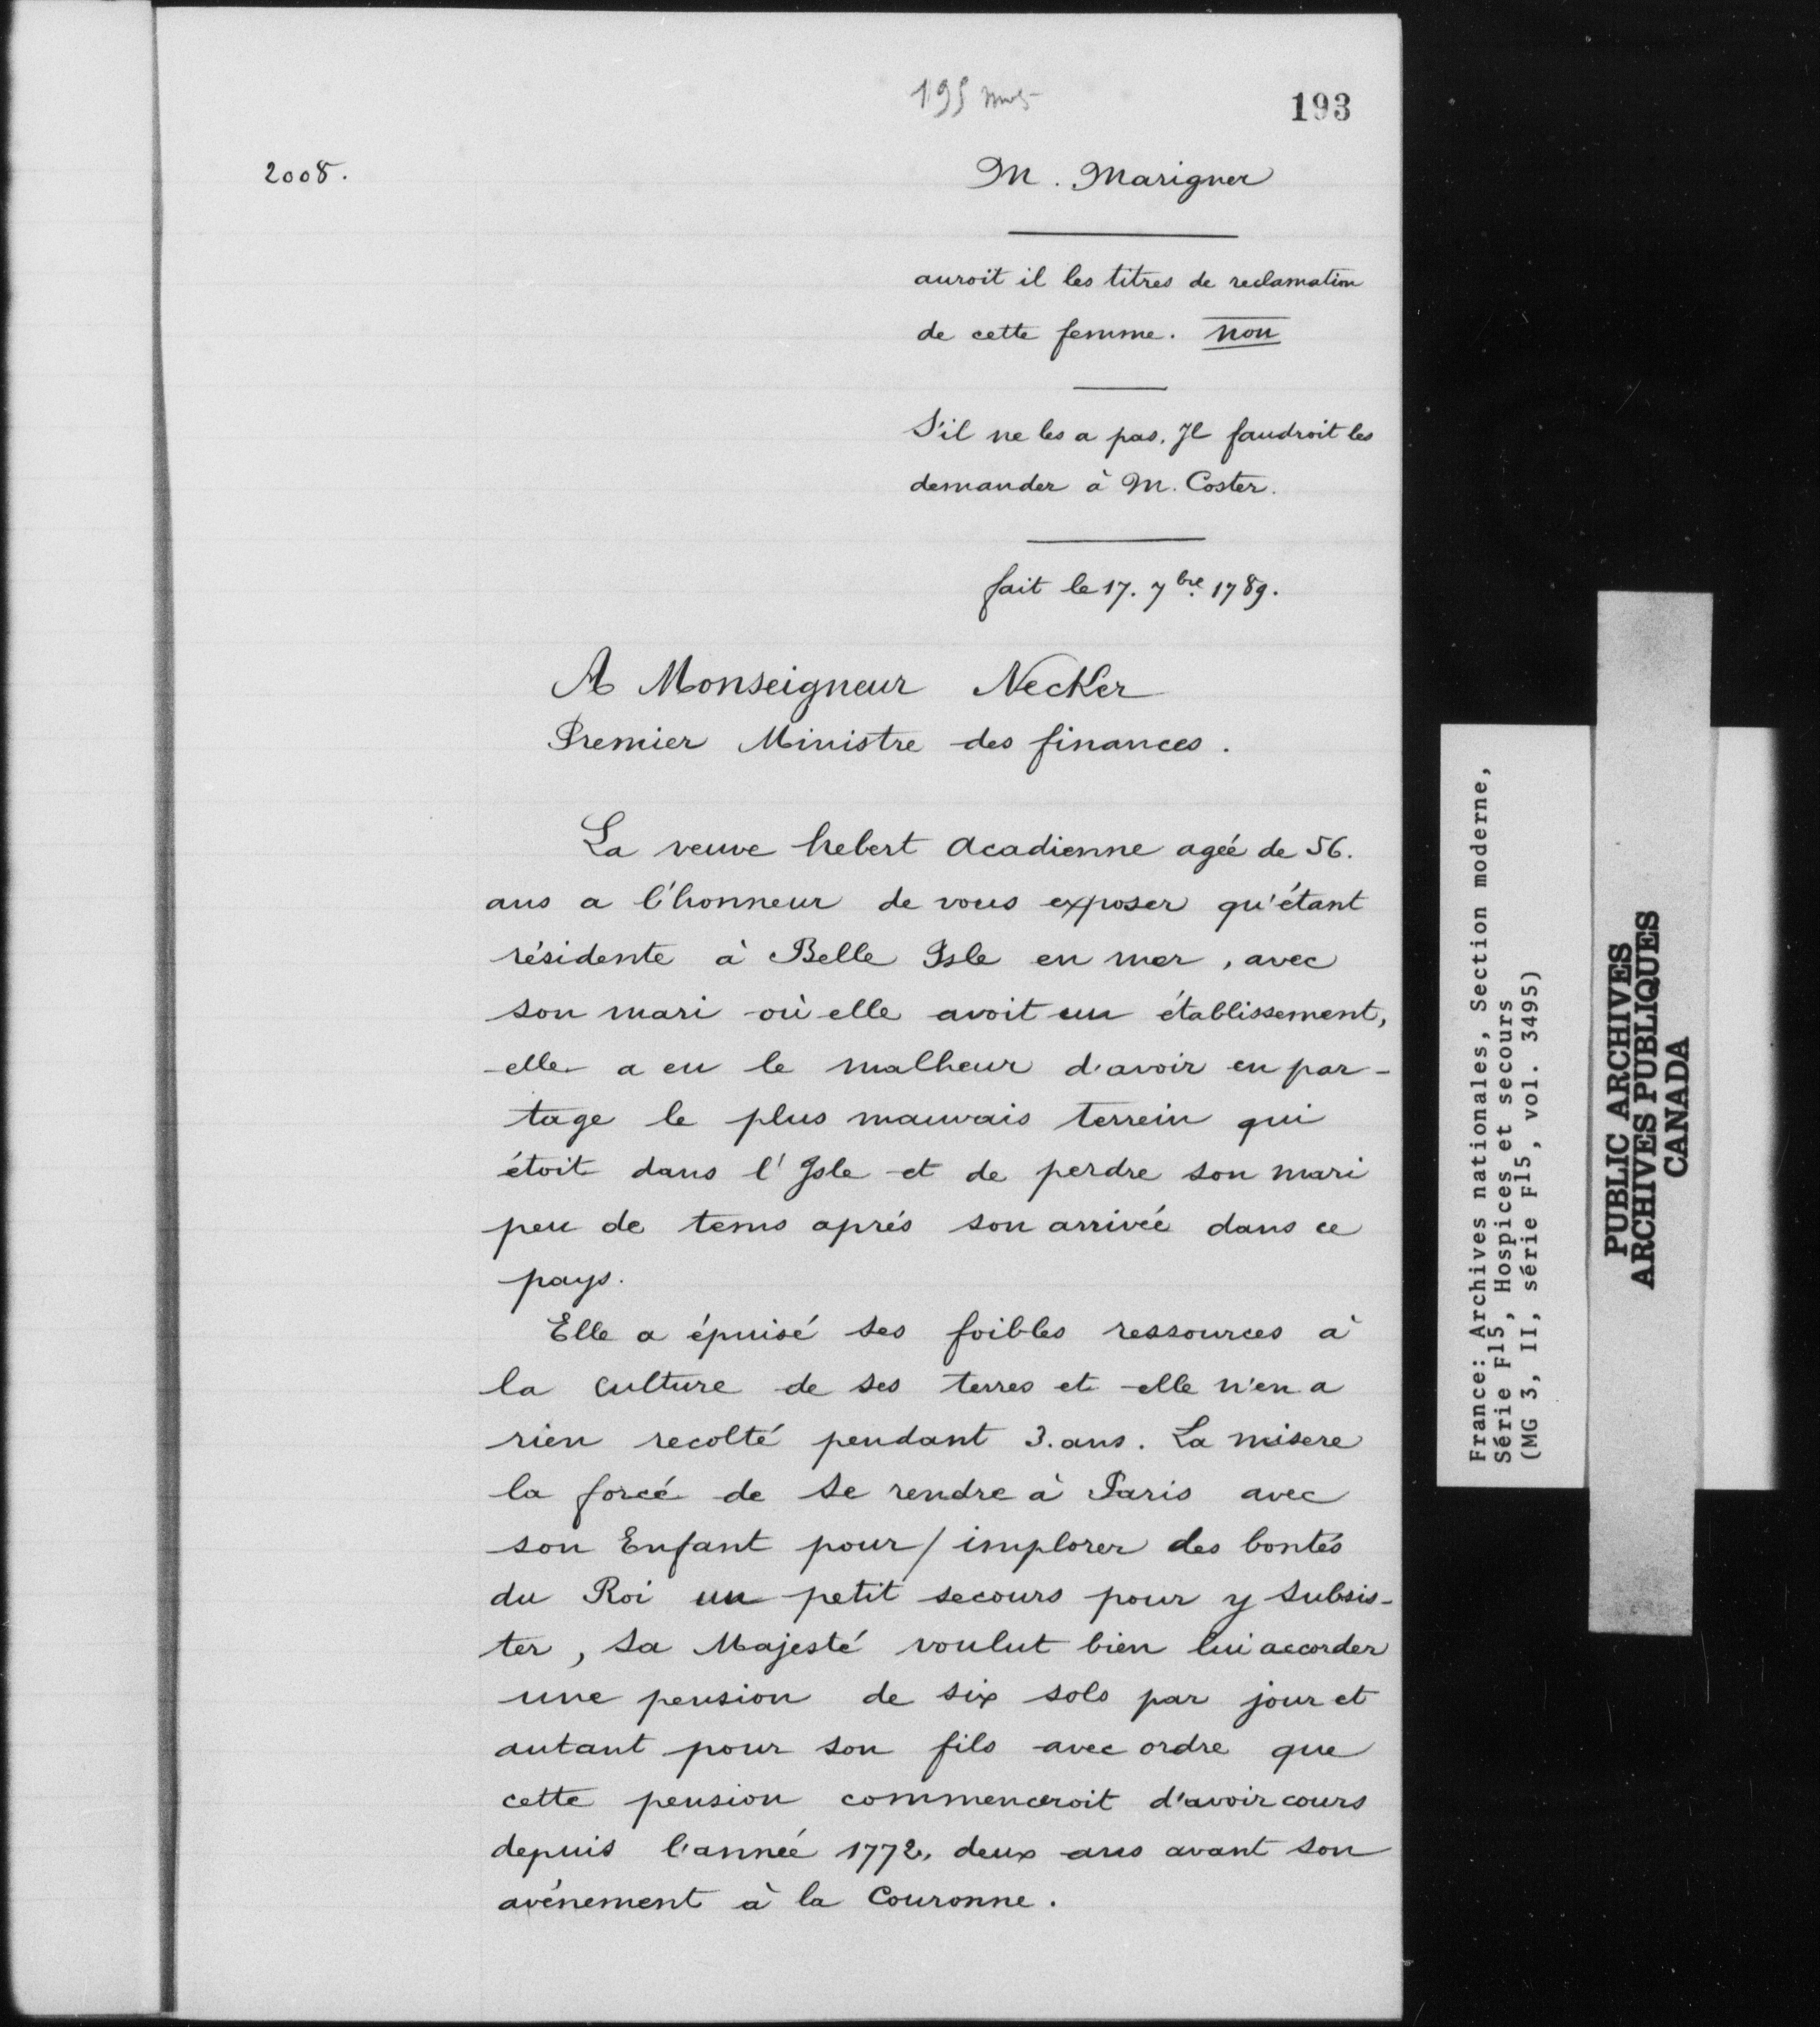 193
2008.
M. Marigner
auroit il les titres de reclamation
de cette femme. non
S'il ne les a pas. Il faudroit les
demander à M. Coster.
fait le 17. 7bre 1789.
A Monseigneur Necker
Premier Ministre des finances.
La veuve hebert acadienne agée de 56.
ans a l'honneur de vous exposer qu'étant
résidente à Belle Isle en mer, avec
son mari où elle avoit un établissement,
elle a eu le malheur d'avoir en par-
tage le plus mauvais terrein qui
étoit dans l'Isle et de perdre son mari
peu de tems aprés son arrivée dans ce
pays.
Elle a épuisé ses foibles ressources à
la culture de ses terres et elle n'en a
rien recolté pendant 3. ans. La misere
la forcé de se rendre à Paris avec
son Enfant pour / implorer des bontés
du Roi un petit secours pour y subsis-
ter, sa Majesté voulut bien lui accorder
une pension de six sols par jour et
autant pour son fils avec ordre que
cette pension commenceroit d'avoir cours
depuis l'année 1772, deux ans avant son
avénement à la Couronne.
France: Archives nationales, Section moderne,
Série F15, Hospices et secours
(MG 3, II, série F15, vol. 3495)
PUBLIC ARCHIVES
ARCHIVES PUBLIQUES
CANADA